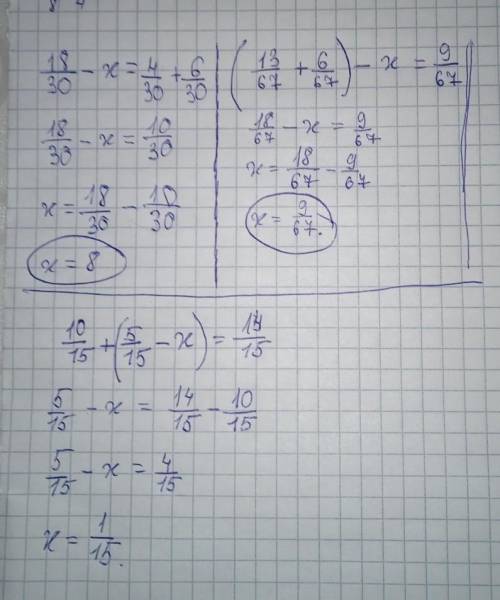 18/30 - x = 4/30 + 6/30
18/30 - x = 10/30
x = 18/30 - 10/30
x = 8
(13/67 + 6/67) - x = 9/67
18/67 - x = 9/67
x = 18/67 - 9/67
x = 9/67.
10/15 + (5/15 - x) = 14/15
5/15 - x = 14/15 - 10/15
5/15 - x = 4/15
x = 1/15.